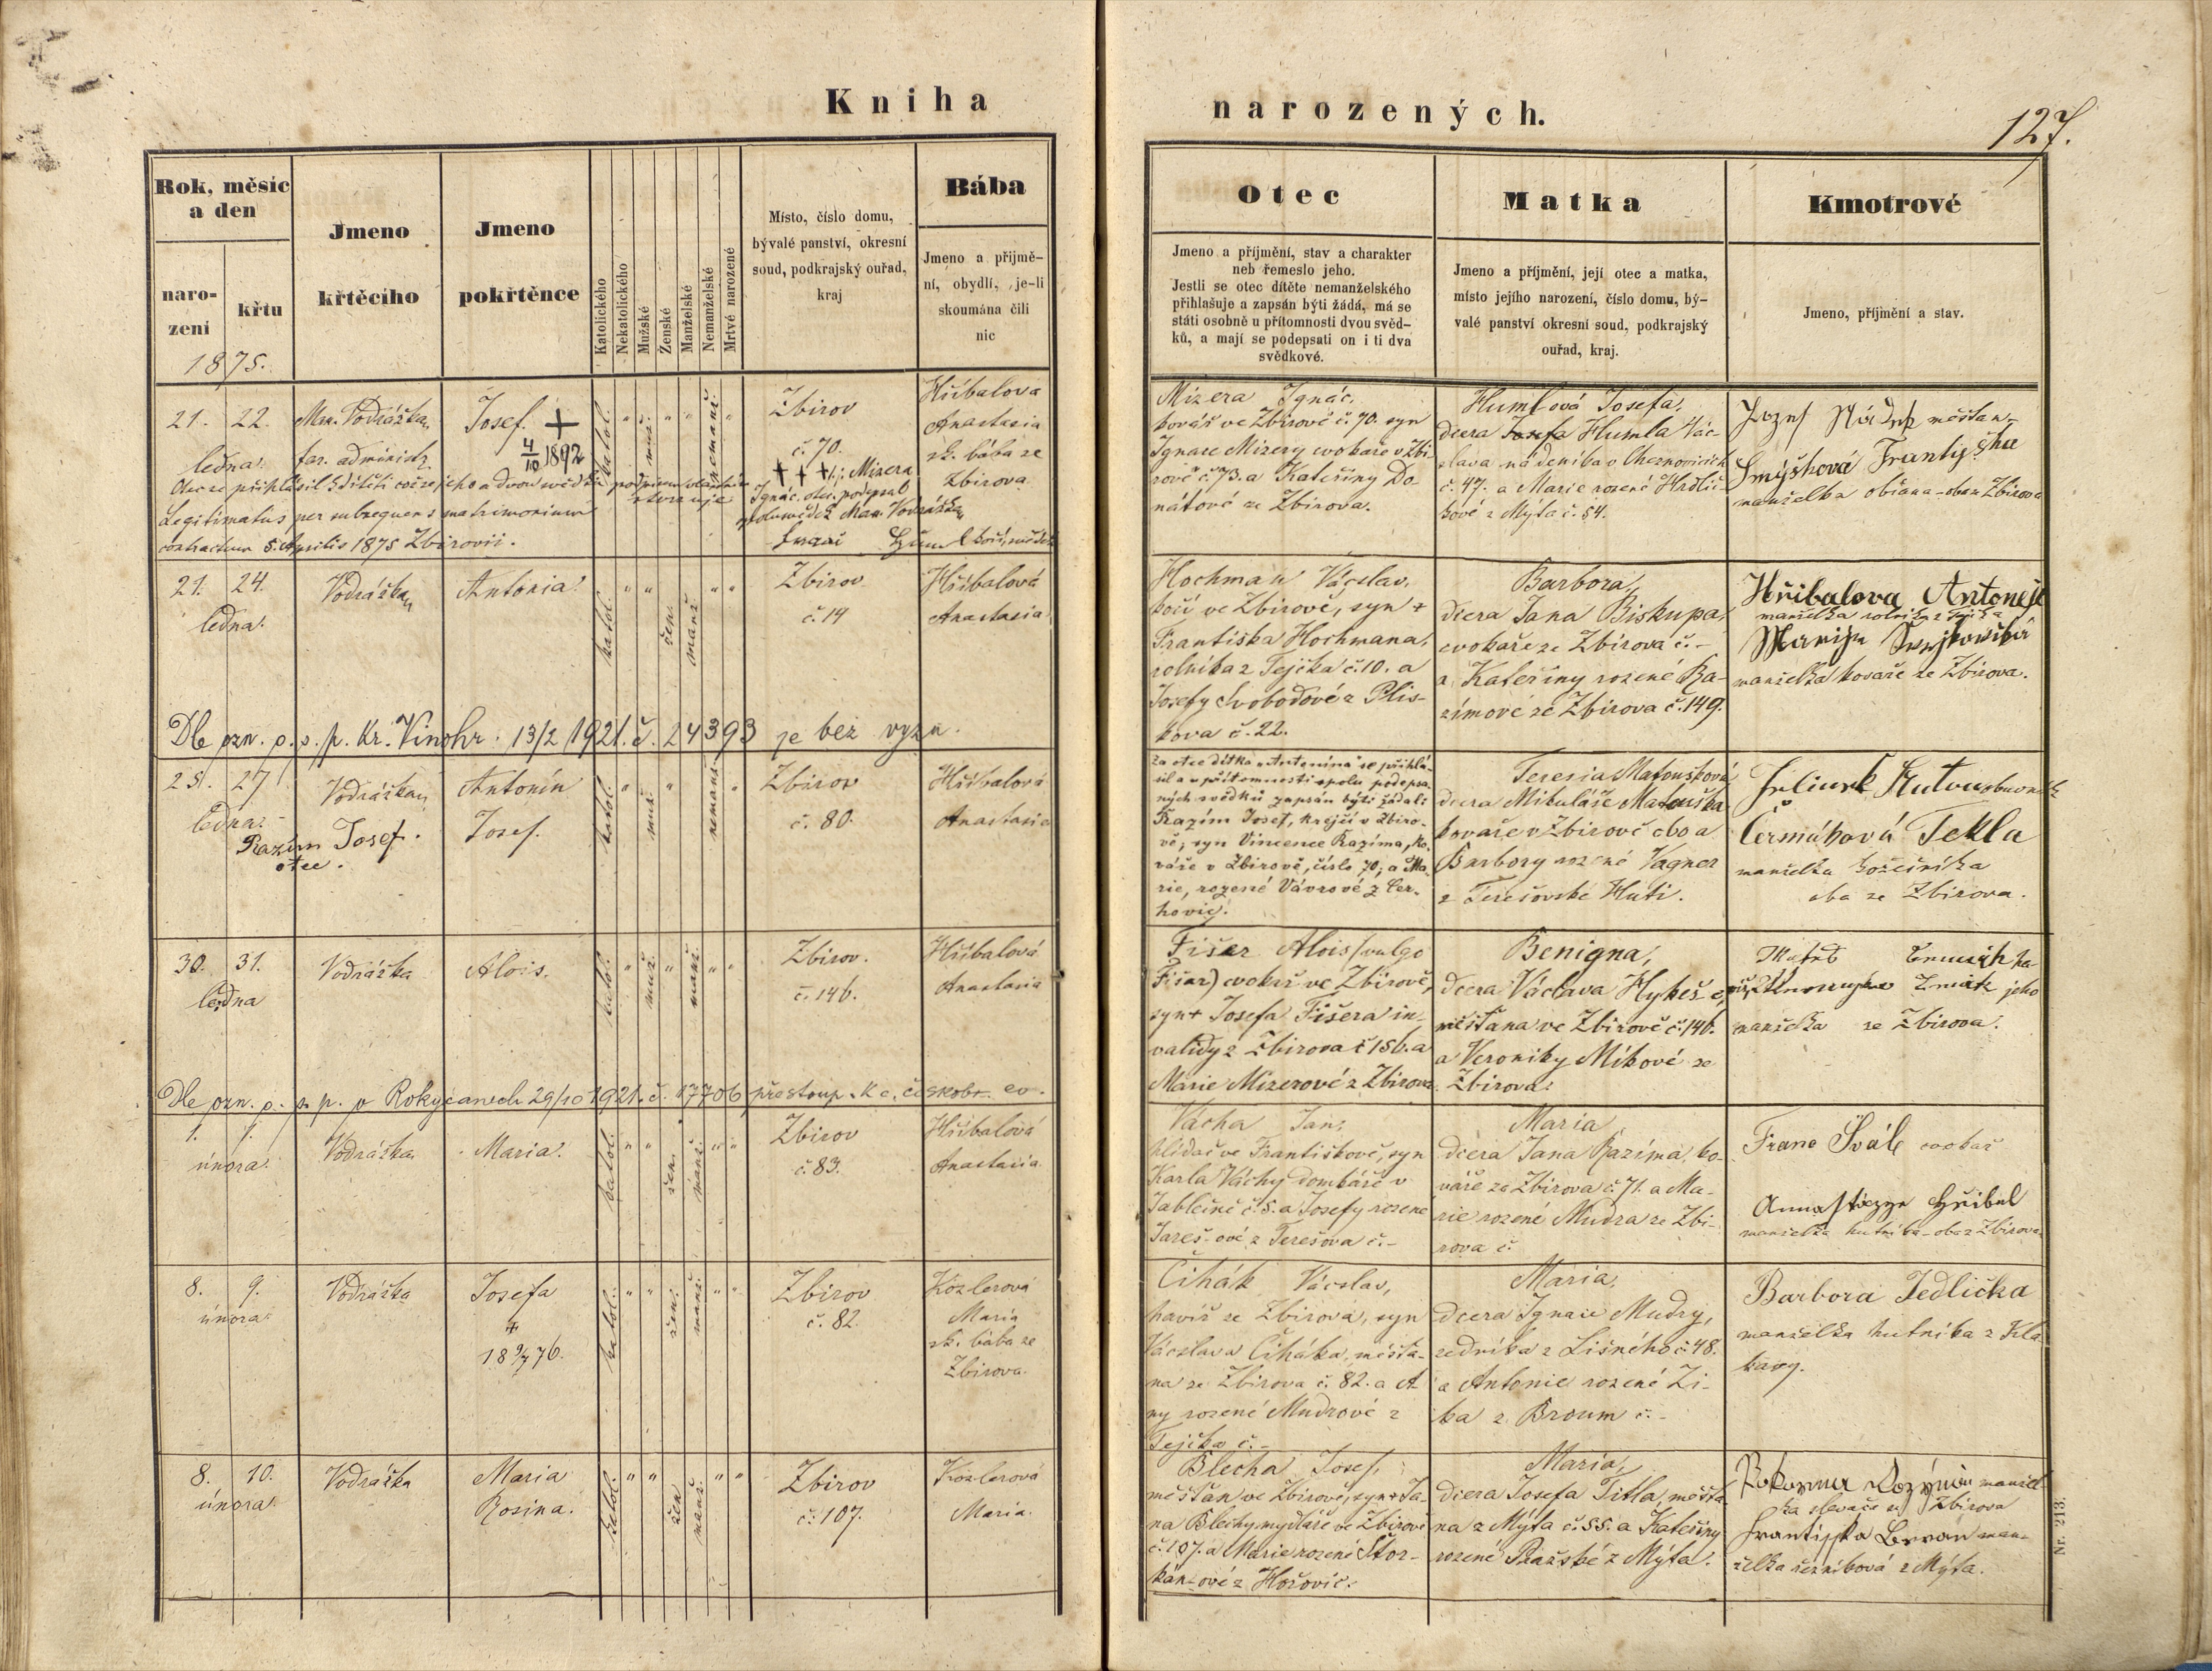 Kniha narozených.
127.
Rok, měsíc a den
narození
křtu
1875.
Jmeno křtěcího
Jmeno pokřtěnce
Katolického
Nekatolického
Mužské
Ženské
Manželské
Nemanželské
Mrtvé narozené
Místo, číslo domu,
bývalé panství, okresní
soud, podkrajský ouřad,
kraj
Bába
Jmeno a přijmě-
ní, obydlí, je-li
skoumána čili
nic
Otec
Jmeno a příjmění, stav a charakter
neb řemeslo jeho.
Jestli se otec dítěte nemanželského
přihlašuje a zapsán býti žádá, má se
státi osobně u přítomnosti dvou svěd-
ků, a mají se podepsati on i ti dva
svědkové.
Matka
Jmeno a příjmění, její otec a matka,
místo jejího narození, číslo domu, bý-
valé panství okresní soud, podkrajský
ouřad, kraj.
Kmotrové
Jmeno, příjmění a stav.
21. 22.
ledna.
Max. Vodrážka,
far. administr.
Josef. +
4/10 1892
katol.
muž.
nemanž.
Zbirov
č. 70.
+ + + Mizera
Ignác, otec, podepsal
Max. Vodrážka
Hřibalova
Anastasia
zk. bába ze
Zbirova
Otec se přihlásil k dítěti což se jeho a dvou svědků podpisem vlastním stvrzuje
Legitimatus per subsequens matrimonium
contractum 5. Aprilis 1875 Zbirovii.
Mizera Ignác,
kovář ve Zbirově č. 70. syn
Ignace Mizery cvokaře v Zbi-
rově č. 73. a Kateřiny Do-
nátové ze Zbirova.
Humlová Josefa,
dcera Josefa Humla Vác-
slava nádeníka v Cheznovicích
č. 47. a Marie rozené Hrdlič-
kové z Mýta č. 54.
měšťan
Smýšková Frantyška
manželka občana - oba z Zbirova
21. 24.
ledna.
Vodrážka
Antonia.
katol.
žen.
manž.
Zbirov
č. 19
Hřibalová
Anastasia
Hochman Václav,
kočí ve Zbirově, syn +
Františka Hochmana,
rolníka z Tejčka č. 10. a
Josefy Svobodové z Plis-
kova č. 22.
Barbora,
dcera Jana Biskupa,
cvokaře ze Zbirova č. -
a Kateřiny rozené Ra-
zímové ze Zbirova č. 149.
Hřibalova Antonej
manželka rolníka z Tejčka
manželka kovaře ze Zbirova.
Dle ozn. o. s. p. Kr. Vinohr. 13/2 1921. č. 24393 je bez vyzn.
25. 27
ledna.
Vodrážka
Antonín
Josef.
katol.
muž.
nemanž.
Zbirov
č. 80.
Hřibalová
Anastasie
Razím Josef.
otec.
Za otce dítka "Antonína" se přihlá-
sil a v přítomnosti spolu podepsa-
ných svědků zapsán býti žádal:
Razím Josef, krejčí v Zbiro-
vě, syn Vincence Razíma, ko-
váře v Zbirově, číslo 70, a Ma-
rie, rozené Vávrové z Cer-
hovic.
Teresia Matoušková
dcera Mikuláše Matouška
kovaře v Zbirově obo a
Barbory rozené Vagner
z Terešovské Huti.
Čermáková Tekla
manželka kožešníka
oba ze Zbirova.
30. 31.
ledna
Vodrážka
Alois.
katol.
muž.
manž.
Zbirov.
č. 146.
Hřibalová
Anastasia
Fišer Alois (vulgo
Fišar) cvokař ve Zbirově,
syn + Josefa Fišera in-
validy z Zbirova č 156. a
Marie Mizerové z Zbirova.
Benigna,
dcera Václava Hykeše,
měšťana ve Zbirově č. 146.
a Veroniky Míkové ze
Zbirova.
jeho
manželka ze Zbirova.
Dle ozn. o. s. p. v Rokycanech 29/10 1921. č. 17706 přestoup. k c. českobr. ev.
1. 1.
února.
Vodrážka
Maria.
katol.
žen.
manž.
Zbirov
č. 83.
Hřibalová
Anastasia.
Vácha Jan,
hlídač ve Františkově, syn
Karla Váchy dombáře v
Jablečně č. 5. a Josefy rozené
Jarešové z Terešova č. -
Maria,
dcera Jana Razíma, ko-
váře ze Zbirova č. 71. a Ma-
rie rozené Mudra ze Zbi-
rova č.
Franc Švále cvokař
manželka hutníka - oba z Zbirova
8. 9.
února.
Vodrážka
Josefa
+
18 9/7 76.
katol.
žen.
manž.
Zbirov
č. 82.
Közlerová
Maria
zk. bába ze
Zbirova.
Čihák Václav,
havíř ze Zbirova, syn
Václava Čiháka, měšťa-
na ze Zbirova č. 82. a A
ny rozené Mudrové z
Tejčka č. -
Maria,
dcera Ignace Mudry,
zedníka z Lišného č. 48.
a Antonie rozené Zi-
ka z Broum č. -
Barbora Jedlička
manželka hutníka z Kla-
bavy.
8. 10.
února.
Vodrážka
Maria
Rosina.
katol.
žen
manž.
Zbirov
č. 107.
Közlerová
Maria.
Blecha Josef,
měšťan ve Zbirově, syn + Ja-
na Blechy mydláře ve Zbirově
č. 107. a Marie rozené Stor-
kánové z Hořovic.
Maria,
dcera Josefa Titla, měšťa-
na z Mýta č. 55. a Kateřiny
rozené Pražské z Mýta.
manžel-
ka slevače ze Zbirova
man-
želka řezníková z Mýta.
Nr. 213.